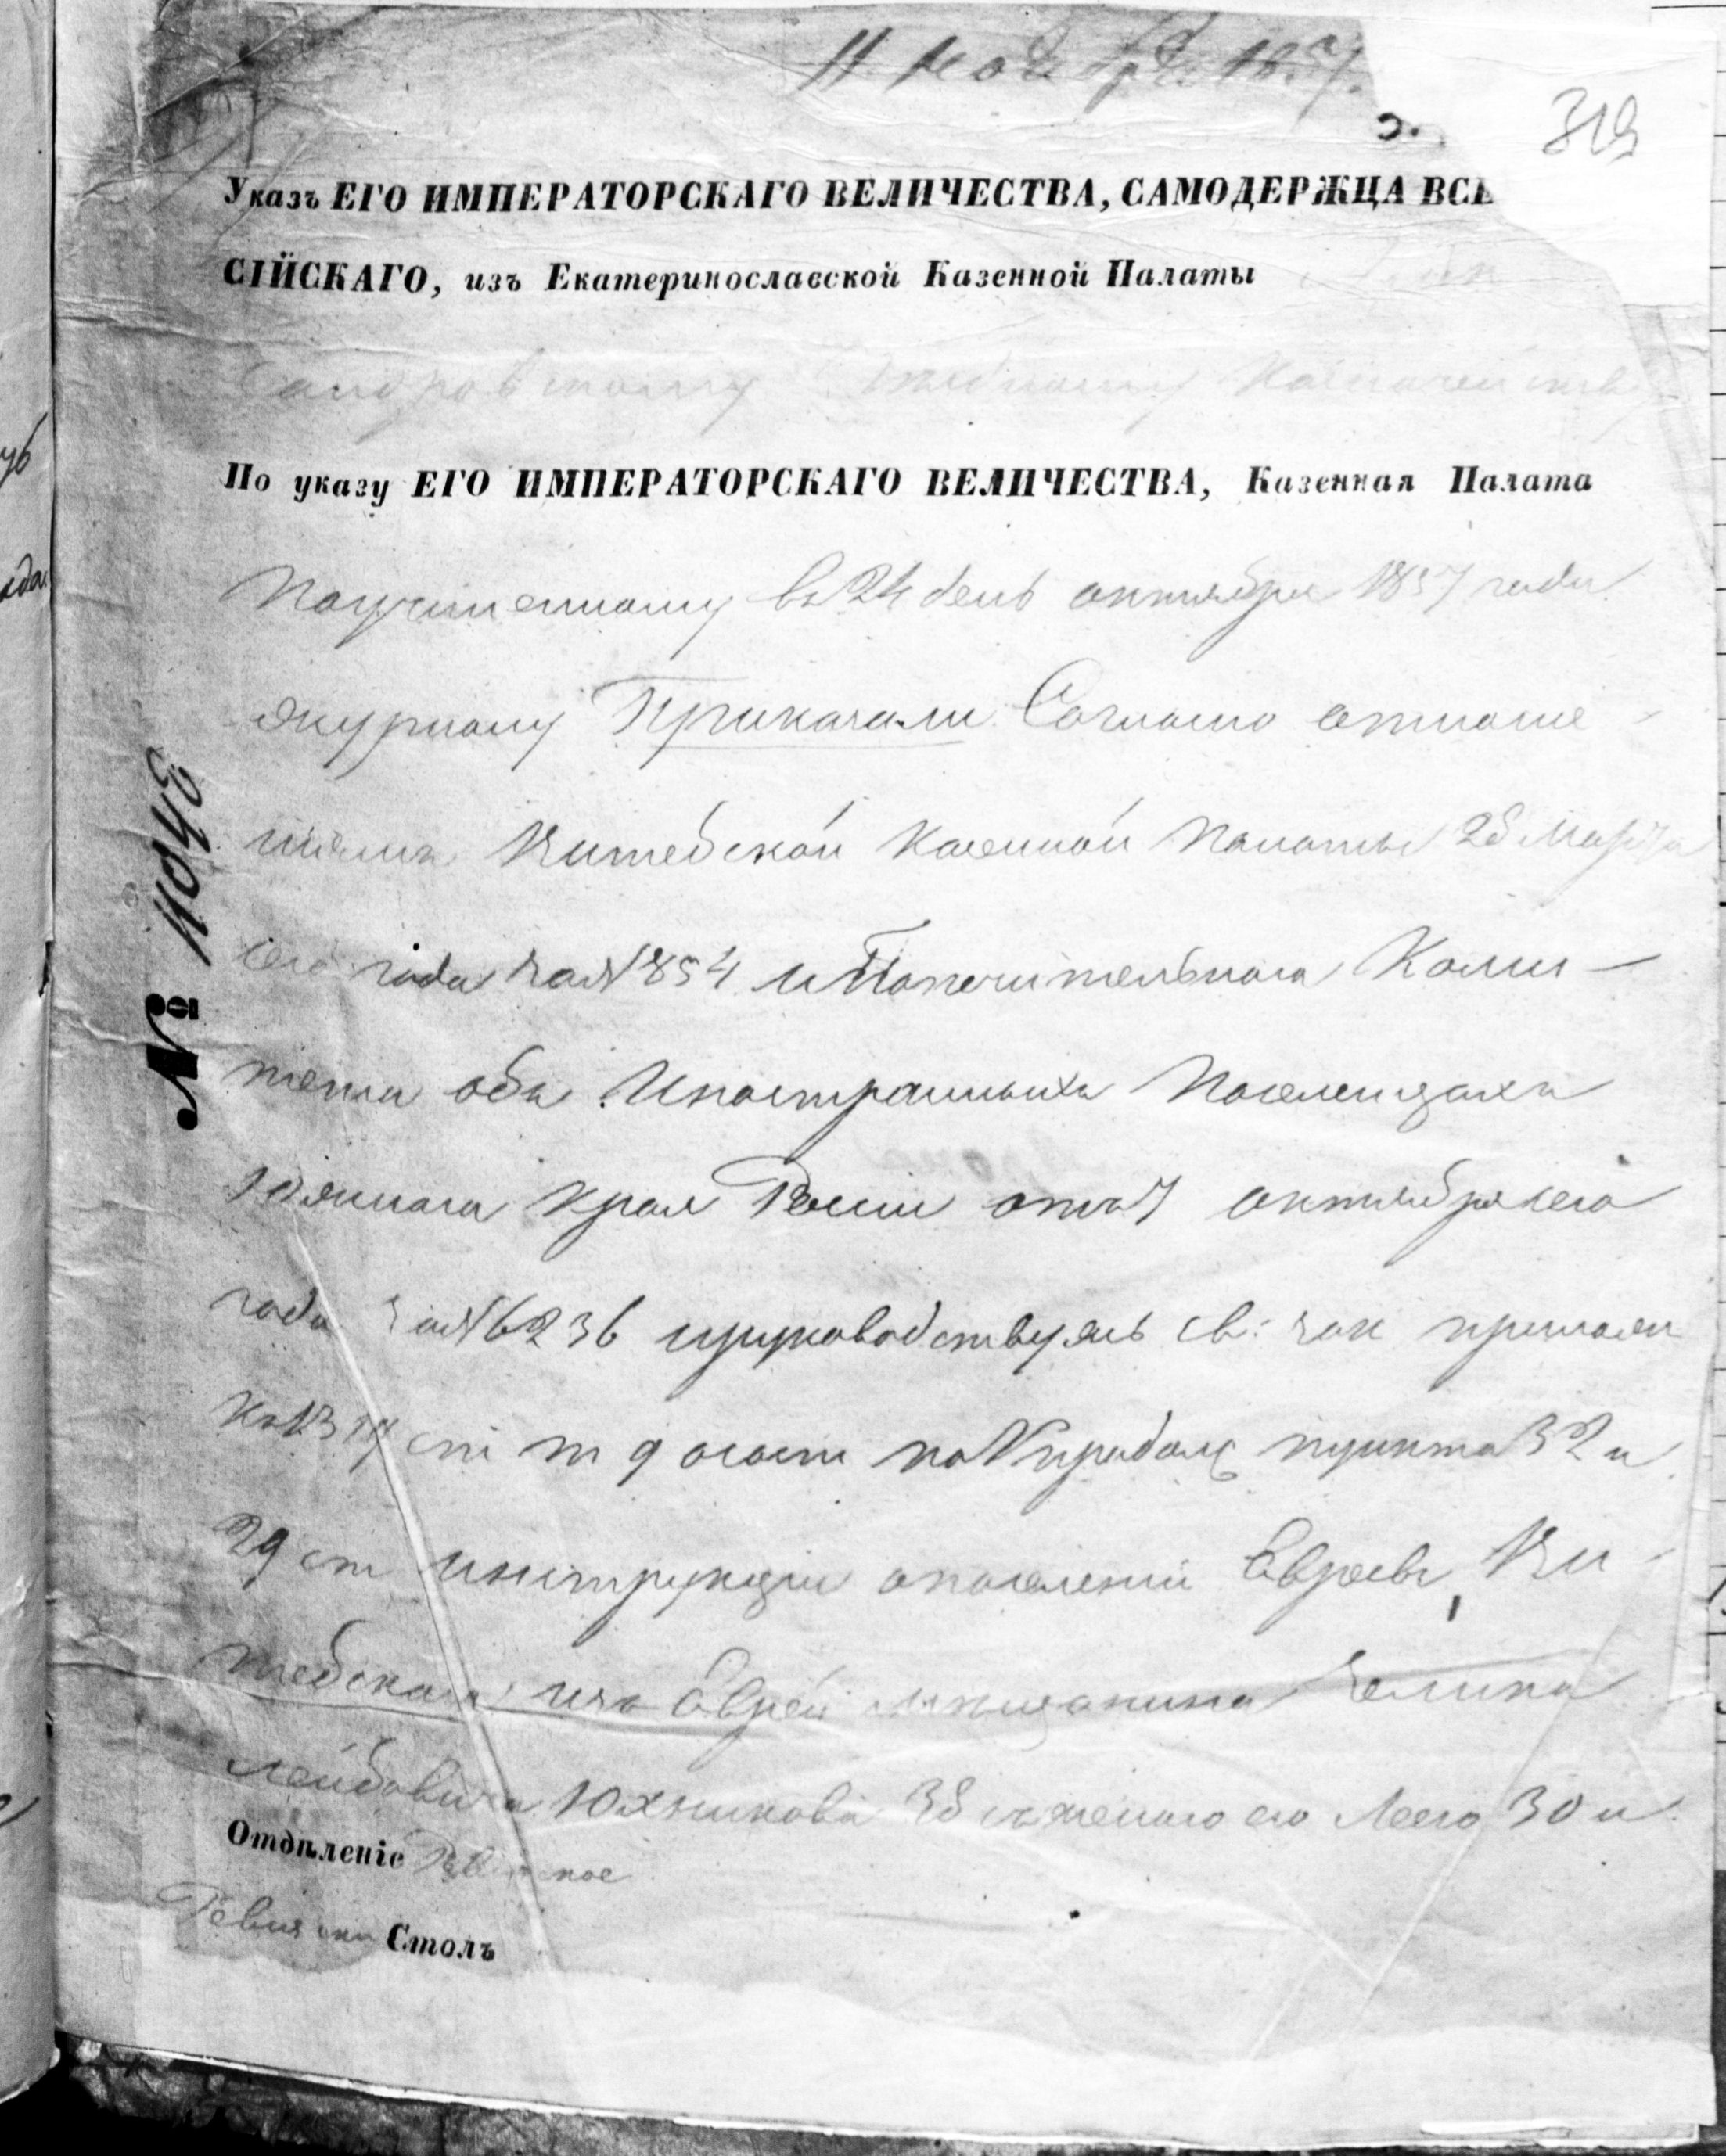 11 Ноября 1857.
319
Указъ ЕГО ИМПЕРАТОРСКАГО ВЕЛИЧЕСТВА, САМОДЕРЖЦА ВСЕ
СІЙСКАГО, изъ Екатеринославской Казенной Палаты
сандровскому уѣздному Казначейству
По указу ЕГО ИМПЕРАТОРСКАГО ВЕЛИЧЕСТВА, Казенная Палата
Поучиненному въ 24 день октября 1857 года
журналу Приказали Согласно отноше-
ніямъ Витебской Казенной Палаты 28 Марта
сего года за № 854 и Попечительнаго Коми-
тета объ Иностранныхъ Поселенцахъ
Южнаго края Россіи отъ 7 октября сего
года за № 6236 и руководствуясь св: зак примѣч
къ 1374 ст т 9 о сост по V продолж пункта 32 и
29 ст инструкціи о поселеніи Евреевъ, Ви-
тебскаго изъ Еврей мѣщанина Зелика
Лейбовича Юхникова 38 съ женою его Леею 30 и
Отдѣленіе Ревизское
Ревизскій Столъ
№ 11048